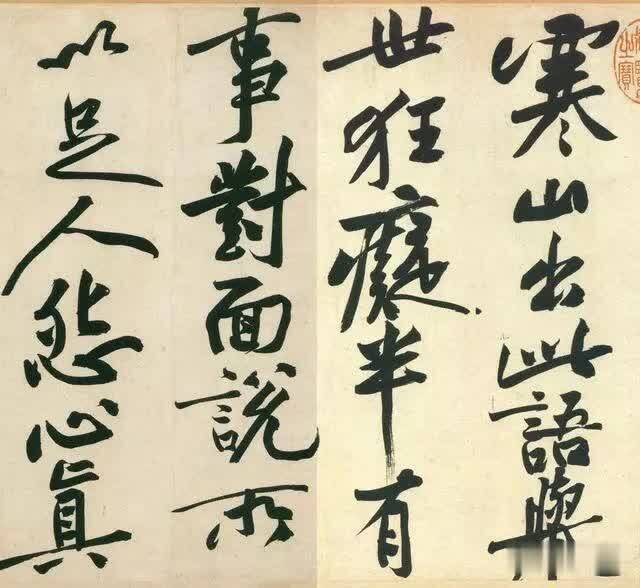 寒山出此語舉
世狂癡半有
事對面說所
以足人怨心真
之寶